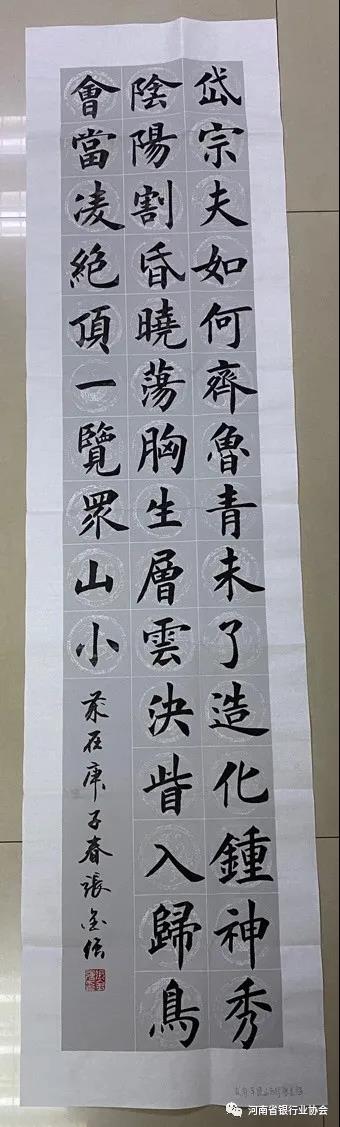 岱宗夫如何齊魯青未了造化鍾神秀
陰陽割昏曉蕩胸生層雲決眥入歸鳥
會當凌絶頂一覽眾山小
歲在庚子春張金
河南省银行业协会